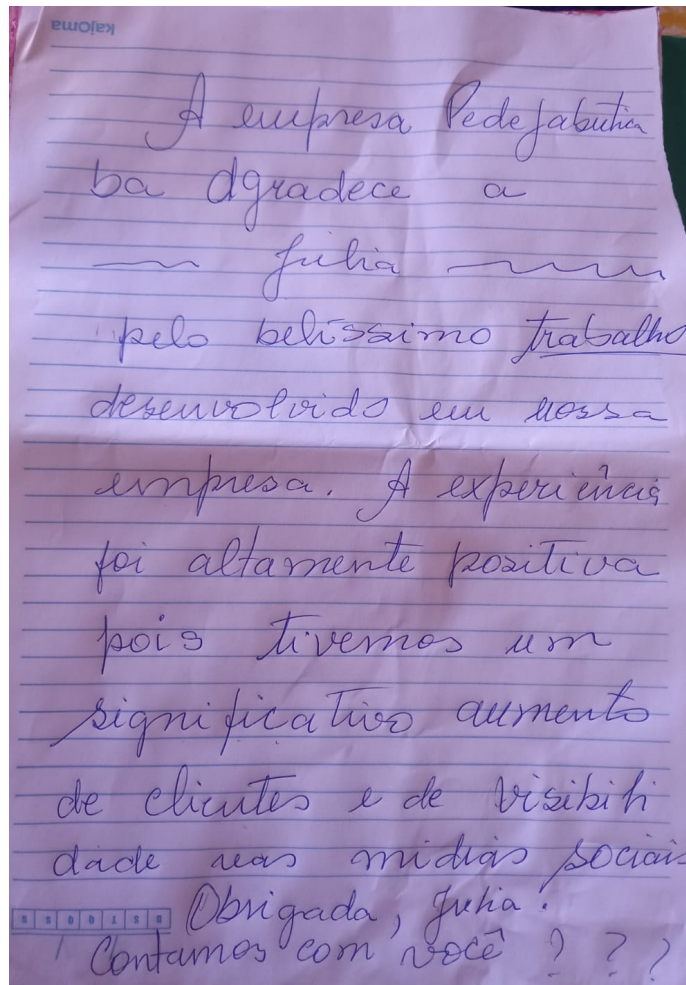 kajoma
A empresa Pede Jabutica
ba agradece a
Júlia
pelo belíssimo trabalho
desenvolvido em nossa
empresa. A experiência
foi altamente positiva
pois tivemos um
significativo aumento
de clientes e de visibili
dade nas mídias sociais
Obrigada, Julia.
Contamos com você ? ? ?